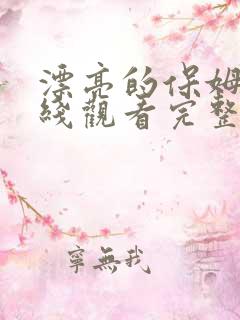 漂亮的保姆
綫觀看完整
寧無我